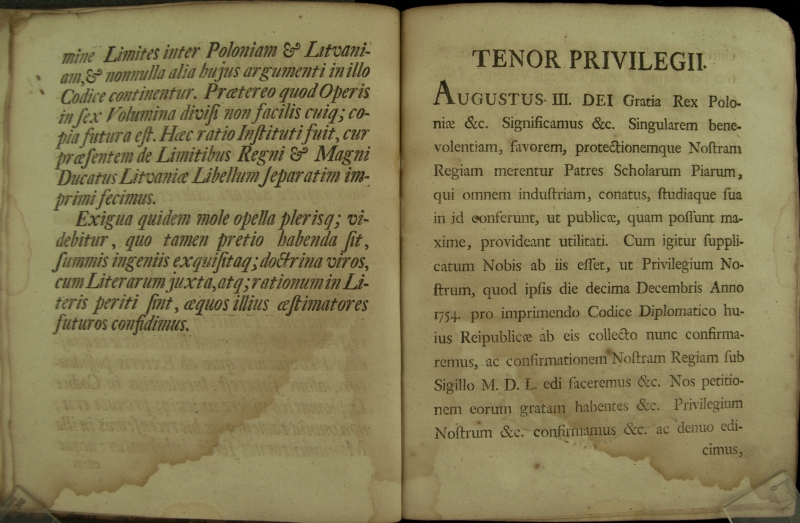 mine Limites inter Poloniam & Litvani-
am, & nonnulla alia hujus argumenti in illo
Codice continentur. Prætereo quod Operis
in ſex Volumina diviſi non facilis cuiq; co-
pia futura eſt. Hæc ratio Inſtituti fuit, cur
præſentem de Limitibus Regni & Magni
Ducatus Litvaniæ Libellum ſeparatim im-
primi fecimus.
Exigua quidem mole opella pleriſq; vi-
debitur, quo tamen pretio habenda ſit,
ſummis ingeniis exquiſitaq; doctrina viros,
cum Literarum juxta, atq; rationum in Li-
teris periti ſint, æquos illius æſtimatores
futuros confidimus.
TENOR PRIVILEGII.
AUGUSTUS III. DEI Gratia Rex Polo-
niæ &c. Significamus &c. Singularem bene-
volentiam, favorem, protectionemque Noſtram
Regiam merentur Patres Scholarum Piarum,
qui omnem induſtriam, conatus, ſtudiaque ſua
in id conferunt, ut publicæ, quam poſſunt ma-
xime, provideant utilitati. Cum igitur ſuppli-
catum Nobis ab iis eſſet, ut Privilegium No-
ſtrum, quod ipſis die decima Decembris Anno
1754. pro imprimendo Codice Diplomatico hu-
ius Reipublicæ ab eis collecto nunc confirma-
remus, ac confirmationem Noſtram Regiam ſub
Sigillo M. D. L. edi faceremus &c. Nos petitio-
nem eorum gratam habentes &c. Privilegium
Noſtrum &c. confirmamus &c. ac denuo edi-
cimus,